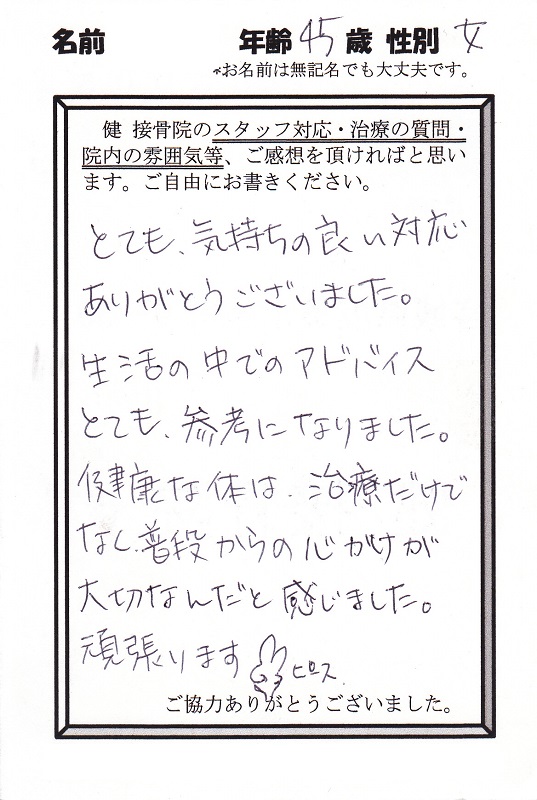 名前 年齢 45 歳 性別 女
*お名前は無記名でも大丈夫です。
健 接骨院のスタッフ対応・治療の質問・
院内の雰囲気等、ご感想を頂ければと思い
ます。ご自由にお書きください。
とても、気持ちの良い対応
ありがとうございました。
生活の中でのアドバイス
とても、参考になりました。
健康な体は、治療だけで
なく、普段からの心がけが
大切なんだと感じました。
頑張ります
ご協力ありがとうございました。